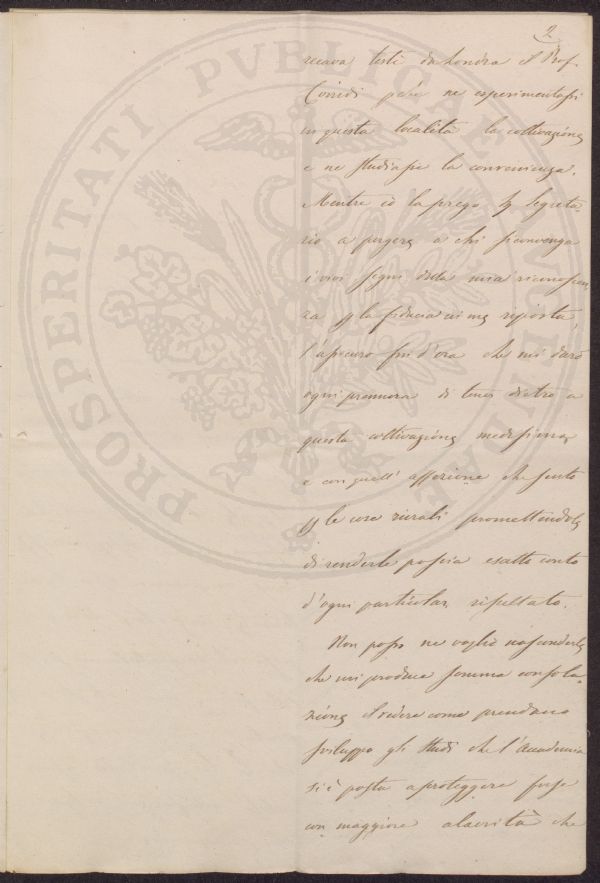 2
recava testè da Londra il Prof.
Corridi però ne esperimentassi
in questa località la coltivazione
e ne studiassi la convenienza.
Mentre iò la prego Sig. Segreta-
rio a porgere a chi si convenga
i vivi segni della mia riconoscen
za la fiducia in me riposta,
l'assicuro fin d'ora che mi darò
ogni premura di tener dietro a
questa coltivazione medesima
e con quell' affezione che sento
le cose rurali promettendole
di renderle poscia esatto conto
d'ogni particolar resultato.
Non posso ne voglio nasconderle
che mi produce somma consola-
zione il vedere come prendano
sviluppo gli studi che l'Accademia
si è posta a proteggere forse
con maggiore alacrità che
PROSPERITATI PVBLICAE AVGENDAE